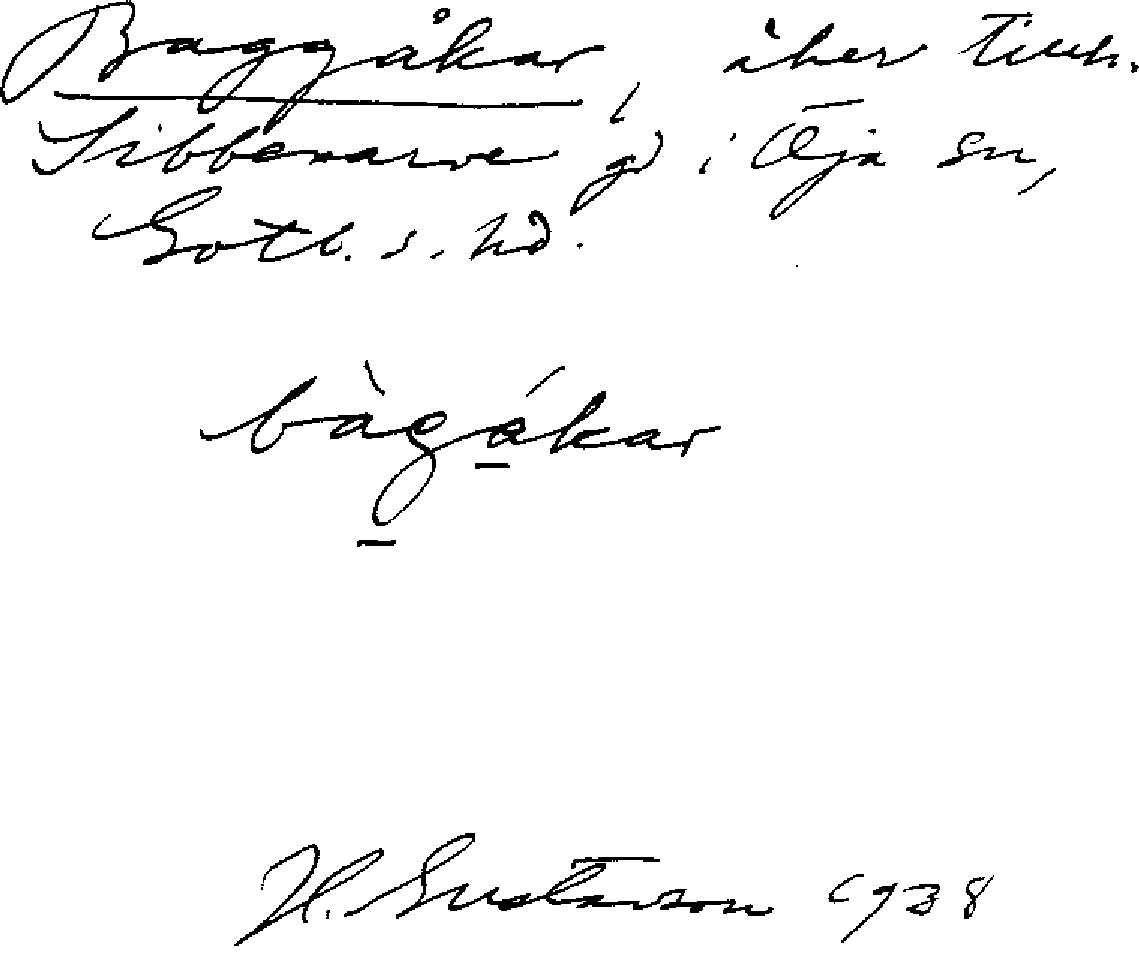 Baggåkar, åker tillh.
Sibbenarve gd i Öja sn,
Gotl. s. hd.
bàgákar
H. Gustavson 1938